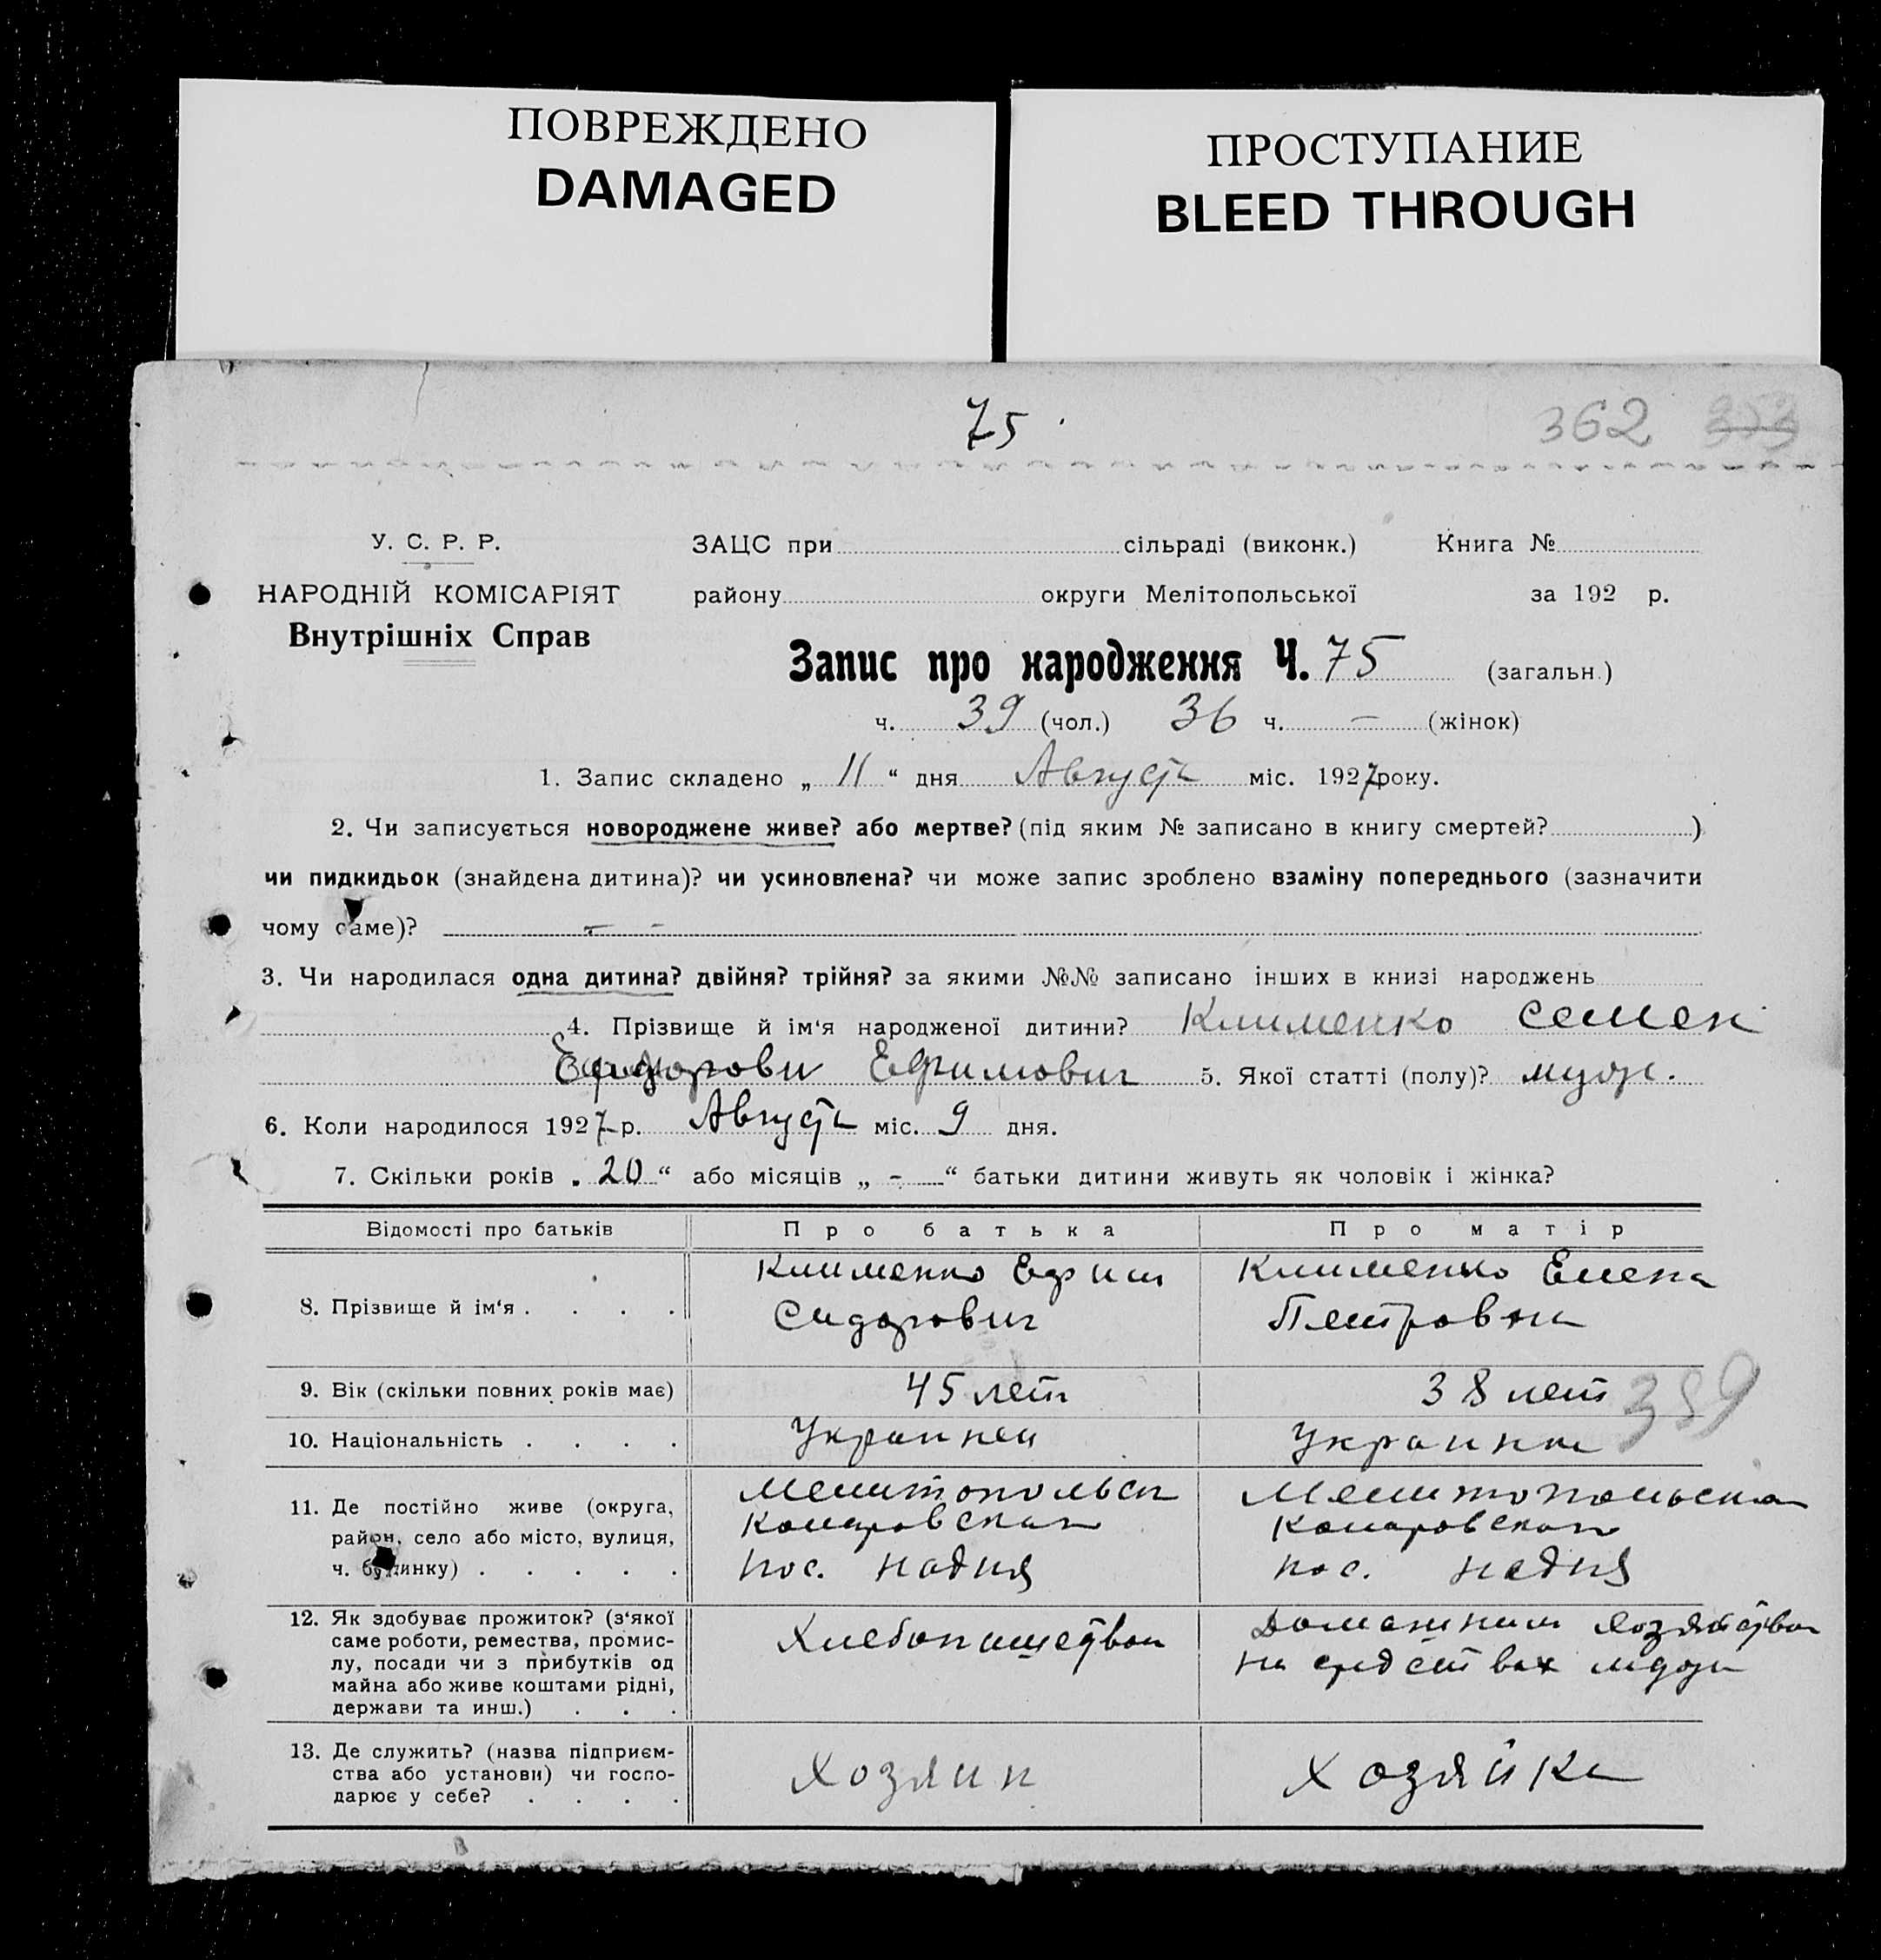 ПОВРЕЖДЕНО
DAMAGED
ПРОСТУПАНИЕ
BLEED THROUGH
75
362
У. С. Р. Р.
НАРОДНІЙ КОМІСАРІЯТ
Внутрішніх Справ
ЗАЦС при сільраді (виконк.) Книга №
району округи Мелітопольської за 192 р.
Запис про народження Ч. 75 (загальн.)
ч. 39 (чол.) 36 ч. — (жінок)
1. Запис складено „ 11 “ дня Августа міс. 1927 року.
2. Чи записується новороджене живе? або мертве? (під яким № записано в книгу смертей? )
чи пидкидьок (знайдена дитина)? чи усиновлена? чи може запис зроблено взаміну попереднього (зазначити
чому саме)? — -
3. Чи народилася одна дитина? двійня? трійня? за якими №№ записано інших в книзі народжень
4. Прізвище й ім'я народженої дитини? Клименко Семен
Ефимович 5. Якої статті (полу)? муж.
6. Коли народилося 1927 р. Августа міс. 9 дня.
7. Скільки років „ 20 “ або місяців „ - “ батьки дитини живуть як чоловік і жінка?
Відомості про батьків Про батька Про матір
8. Прізвище й ім'я . . . .
Клименко Ефим
Сидорович
Клименко Елена
Петровна
9. Вік (скільки повних років має) 45 лет 38 лет
389
10. Національність . . . . Украинец Украинка
11. Де постійно живе (округа,
район, село або місто, вулиця,
ч. будинку) . . . . .
Мелитопольск
Комаровская
пос. Надия
Мелитопольская
Комаровская
пос. Надия
12. Як здобуває прожиток? (з'якої
саме роботи, ремества, промис-
лу, посади чи з прибутків од
майна або живе коштами рідні,
держави та инш.) . . .
Хлебопашеством
Домашним хозяйством
на средствах мужа
13. Де служить? (назва підприєм-
ства або установи) чи госпо-
дарює у себе? . . . .
Хозяин
Хозяйка